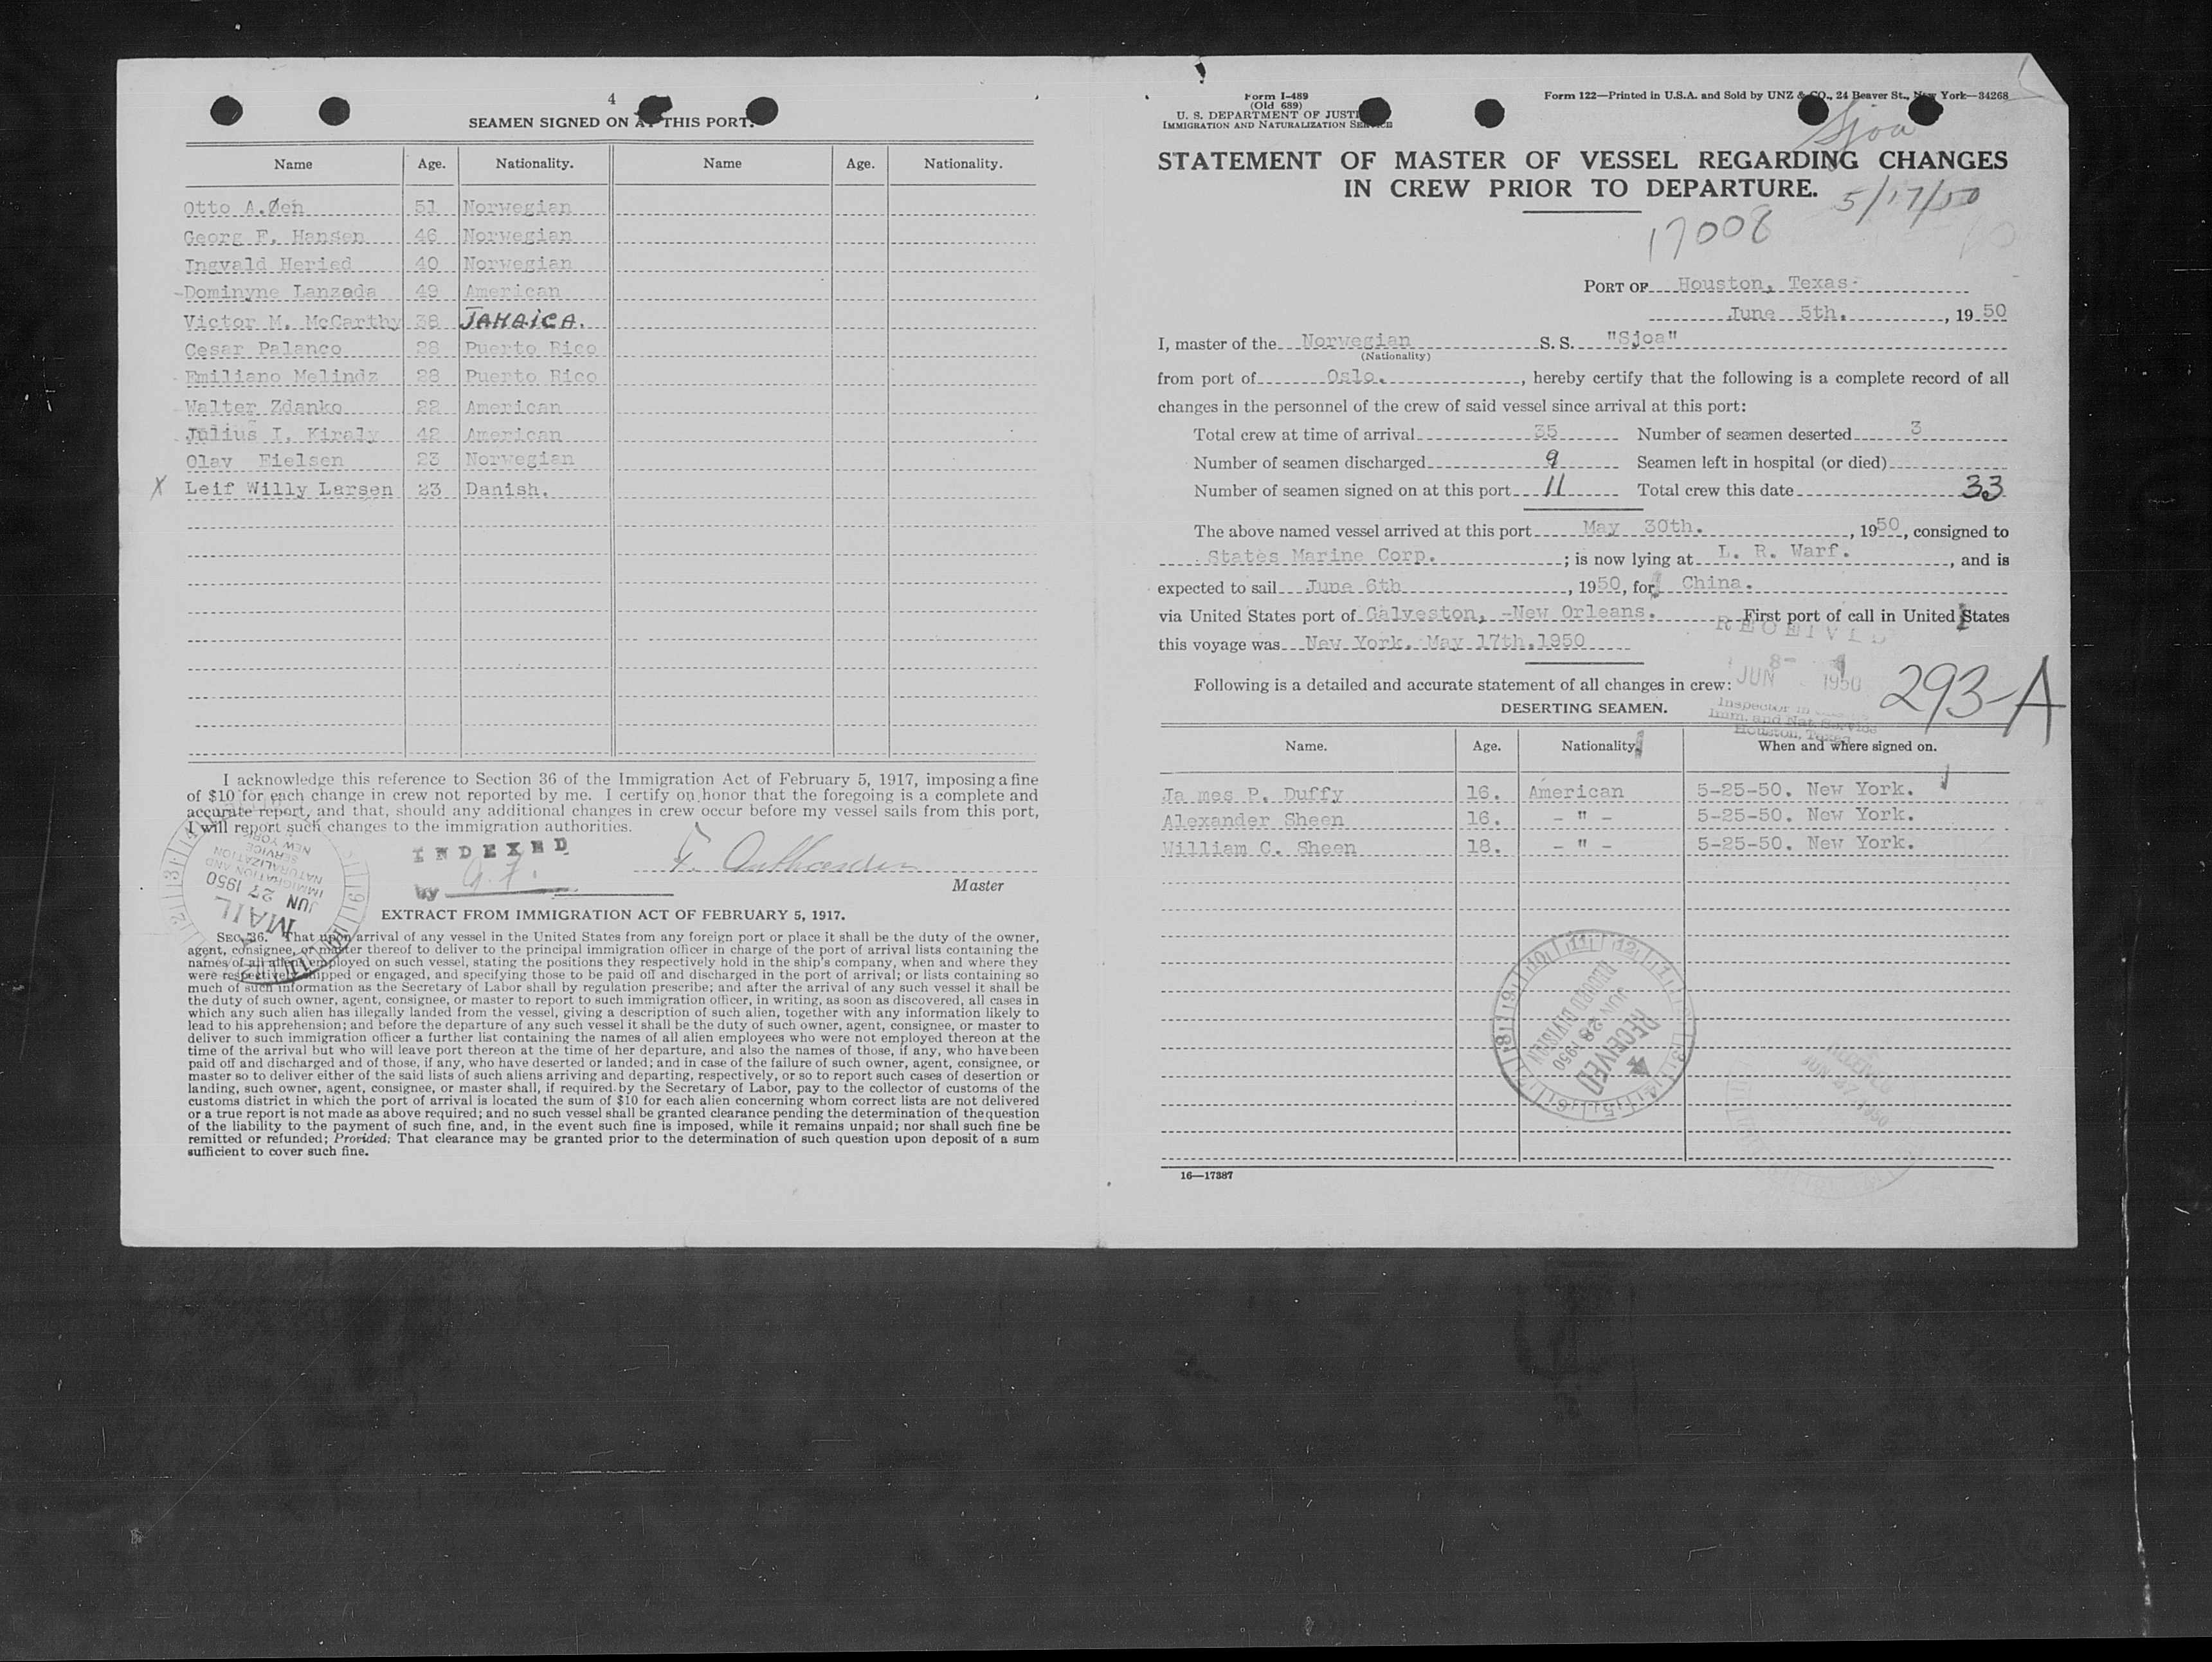 4
SEAMEN SIGNED ON AT THIS PORT.
Name Age. Nationality. Name Age. Nationality.
Otto A.Øen 51 Norwegian
Georg F. Hansen 46 Norwegian
Ingvald Heried 40 Norwegian
-Dominyne Lanzada 49 American
Victor M. McCarthy 38 JAMAICA.
Cesar Palanco 28 Puerto Rico
- Emiliano Melindz 28 Puerto Rico
- Walter Zdanko 22 American
- Julius I. Kiraly 42 American
Olav Eielsen 23 Norwegian
X Leif Willy Larsen 23 Danish.
I acknowledge this reference to Section 36 of the Immigration Act of February 5, 1917, imposing a fine
of $10 for each change in crew not reported by me. I certify on honor that the foregoing is a complete and
accurate report, and that, should any additional changes in crew occur before my vessel sails from this port,
I will report such changes to the immigration authorities.
INDEXED
by G. F.
Master
IMMIGRATION AND
NATURALIZATION
SERVICE
NEW YORK
JUN 27 1950
MAIL
EXTRACT FROM IMMIGRATION ACT OF FEBRUARY 5, 1917.
SEC. 36. That upon arrival of any vessel in the United States from any foreign port or place it shall be the duty of the owner,
agent, consignee, or master thereof to deliver to the principal immigration officer in charge of the port of arrival lists containing the
names of all aliens employed on such vessel, stating the positions they respectively hold in the ship's company, when and where they
were respectively shipped or engaged, and specifying those to be paid off and discharged in the port of arrival; or lists containing so
much of such information as the Secretary of Labor shall by regulation prescribe; and after the arrival of any such vessel it shall be
the duty of such owner, agent, consignee, or master to report to such immigration officer, in writing, as soon as discovered, all cases in
which any such alien has illegally landed from the vessel, giving a description of such alien, together with any information likely to
lead to his apprehension; and before the departure of any such vessel it shall be the duty of such owner, agent, consignee, or master to
deliver to such immigration officer a further list containing the names of all alien employees who were not employed thereon at the
time of the arrival but who will leave port thereon at the time of her departure, and also the names of those, if any, who have been
paid off and discharged and of those, if any, who have deserted or landed; and in case of the failure of such owner, agent, consignee, or
master so to deliver either of the said lists of such aliens arriving and departing, respectively, or so to report such cases of desertion or
landing, such owner, agent, consignee, or master shall, if required by the Secretary of Labor, pay to the collector of customs of the
customs district in which the port of arrival is located the sum of $10 for each alien concerning whom correct lists are not delivered
or a true report is not made as above required; and no such vessel shall be granted clearance pending the determination of the question
of the liability to the payment of such fine, and, in the event such fine is imposed, while it remains unpaid; nor shall such fine be
remitted or refunded; Provided; That clearance may be granted prior to the determination of such question upon deposit of a sum
sufficient to cover such fine.
Form I-489
(Old 689)
U. S. DEPARTMENT OF JUSTICE
IMMIGRATION AND NATURALIZATION SERVICE
Form 122—Printed in U.S.A. and Sold by UNZ & CO., 24 Beaver St., New York—34268
Sjoa
STATEMENT OF MASTER OF VESSEL REGARDING CHANGES
IN CREW PRIOR TO DEPARTURE.
5/17/50
17008
PORT OF Houston, Texas.
June 5th. , 19 50
I, master of the Norwegian S. S. "Sjoa"
(Nationality)
from port of Oslo. , hereby certify that the following is a complete record of all
changes in the personnel of the crew of said vessel since arrival at this port:
Total crew at time of arrival 35 Number of seamen deserted 3
Number of seamen discharged 9 Seamen left in hospital (or died)
Number of seamen signed on at this port 11 Total crew this date 33
The above named vessel arrived at this port May 30th. , 1950, consigned to
States Marine Corp. ; is now lying at L. R. Warf. , and is
expected to sail June 6th , 1950, for China.
via United States port of Galveston, -New Orleans. First port of call in United States
this voyage was New York. May 17th.1950
RECEIVED
JUN 8- 1950
Inspector in
Imm. and Nat. Service
Houston, Texas
293-A
Following is a detailed and accurate statement of all changes in crew:
DESERTING SEAMEN.
Name. Age. Nationality. When and where signed on.
Ja mes P. Duffy 16. American 5-25-50. New York.
Alexander Sheen 16. - " - 5-25-50. New York.
William C. Sheen 18. - " - 5-25-50. New York.
RECORD DIVISION
JUN 28 1950
RECEIVED
RECEIVED
JUN 27 1950
16—17387